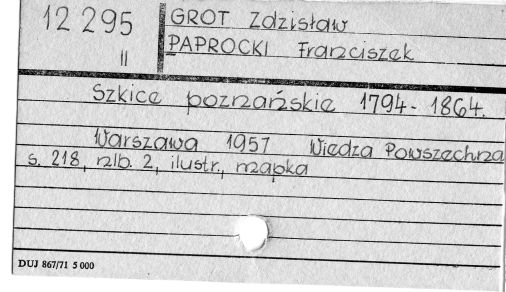 12 295
II
GROT Zdzisław
PAPROCKI Franciszek
Szkice poznańskie 1794-1864.
Warszawa 1957 Wiedza Powszechna
s. 218, nlb. 2, ilustr., mapka
DUJ 867/71 5 000